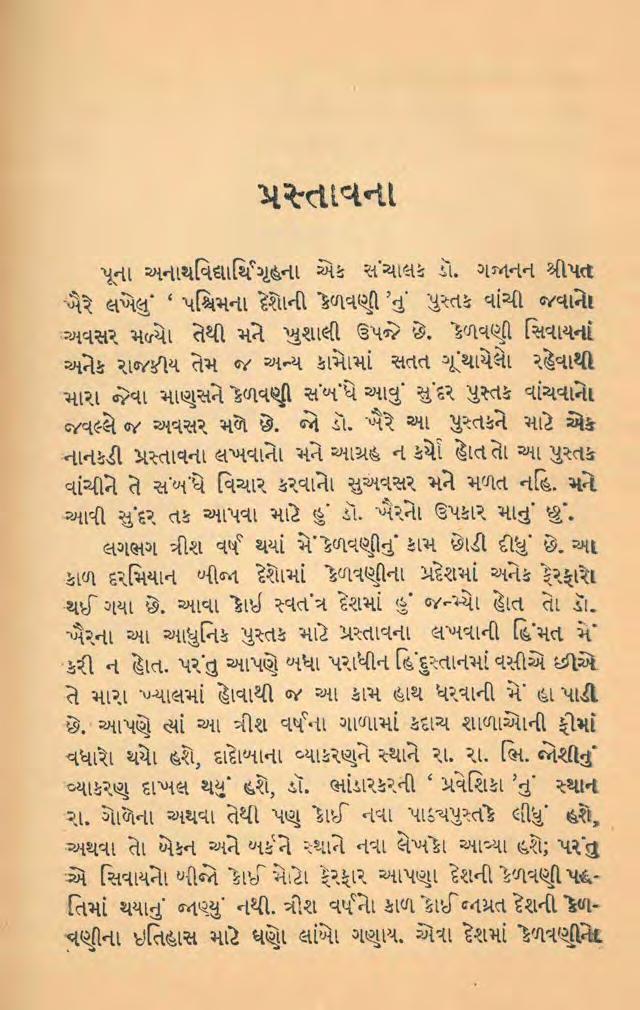 પ્રસ્તાવના
પૂના અનાથવિદ્યાર્થિગૃહના એક સંચાલક ડૉ. ગજાનન શ્રીપત
ખૈરે લખેલું ‘ પશ્ચિમના દેશોની કેળવણી ’નું પુસ્તક વાંચી જવાનો
અવસર મળ્યો તેથી મને ખુશાલી ઉપજે છે. કેળવણી સિવાયનાં
અનેક રાજકીય તેમ જ અન્ય કામોમાં સતત ગૂંથાયેલો રહેવાથી
મારા જેવા માણસને કેળવણી સંબંધે આવું સુંદર પુસ્તક વાંચવાનો
જવલ્લે જ અવસર મળે છે. જો ડૉ. ખૈરે આ પુસ્તકને માટે એક
નાનકડી પ્રસ્તાવના લખવાનો મને આગ્રહ ન કર્યો હોત તો આ પુસ્તક
વાંચીને તે સંબંધે વિચાર કરવાનો સુઅવસર મને મળત નહિ. મને
આવી સુંદર તક આપવા માટે હું ડૉ. ખૈરનો ઉપકાર માનું છું.
લગભગ ત્રીશ વર્ષ થયાં મેં કેળવણીનું કામ છોડી દીધું છે. આ
કાળ દરમિયાન બીજા દેશોમાં કેળવણીના પ્રદેશમાં અનેક ફેરફારો
થઈ ગયા છે. આવા કોઇ સ્વતંત્ર દેશમાં હું જન્મ્યો હોત તો ડૉ.
ખૈરના આ આધુનિક પુસ્તક માટે પ્રસ્તાવના લખવાની હિંમત મેં
કરી ન હોત. પરંતુ આપણે બધા પરાધીન હિંદુસ્તાનમાં વસીએ છીએ
તે મારા ખ્યાલમાં હોવાથી જ આ કામ હાથ ધરવાની મેં હા પાડી
છે. આપણે ત્યાં આ ત્રીશ વર્ષના ગાળામાં કદાચ શાળાઓની ફીમાં
વધારો થયો હશે, દાદોબાના વ્યાકરણને સ્થાને રા. રા. ભિ. જોશીનું
વ્યાકરણ દાખલ થયું હશે, ડૉ. ભાંડારકરની ‘ પ્રવેશિકા ’નું સ્થાન
રા. ગોળેના અથવા તેથી પણ કોઈ નવા પાઠ્યપુસ્તકે લીધું હશે,
અથવા તો બેકન અને બર્કને સ્થાને નવા લેખકો આવ્યા હશે; પરંતુ
એ સિવાયનો બીજો કોઈ મોટો ફેરફાર આપણા દેશની કેળવણી પદ્ધ-
તિમાં થયાનું જાણ્યું નથી. ત્રીશ વર્ષનો કાળ કોઈ જાગ્રત દેશની કેળ-
વણીના ઇતિહાસ માટે ઘણો લાંબો ગણાય. એવા દેશમાં કેળવણીનો